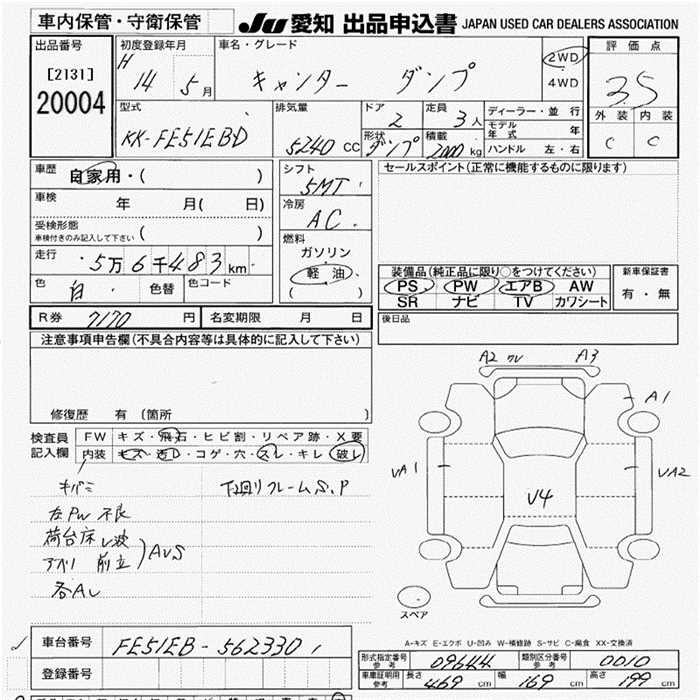 車内保管・守衛保管
JU 愛知 出品申込書 JAPAN USED CAR DEALERS ASSOCIATION
出品番号
[2131]
20004
初度登録年月
H 14 5月
車名・グレード
キャンター ダンプ
2WD
4WD
評価点
3.5
外装 内装
C C
型式
KK-FE51EBD
排気量
5240 CC
ドア
2
形状
ダンプ
定員
3人
積載
2000 kg
ディーラー・並行
モデル年式 年
ハンドル 左・右
車歴
自家用・( )
車検
年 月( 日)
受検形態
車検付きのみ記入して下さい ( )
走行
5万6千483km
色
白 色替
色コード
シフト
5MT
冷房
AC
燃料
ガソリン
軽油
( )
セールスポイント(正常に機能するものに限ります)
装備品(純正品に限り○をつけてください)
PS PW エアB AW
SR ナビ TV カワシート
新車保証書
有・無
R券 7170 円
名変期限 月 日
後日品
注意事項申告欄(不具合内容等は具体的に記入して下さい)
修復歴 有 〔箇所 〕
検査員
記入欄
FW キズ・飛石・ヒビ割・リペア跡・X要
内装 キズ・汚レ・コゲ・穴・スレ・キレ・破レ
キバミ
左PW 不良
荷台床 レ波
アオリ 前立 ) AUS
各AL
下回リフレームS,P
A2 ワレ A3
A1
VA1
VA2
V4
スペア
A-キズ E-エクボ U-凹み W-補修跡 S-サビ C-腐食 XX-交換済
車台番号
FE51EB-562330
登録番号
形式指定番号
参考
09644
類別区分番号
参考
0010
車庫証明用
参考
長さ 469 cm
幅 169 cm
高さ 199 cm